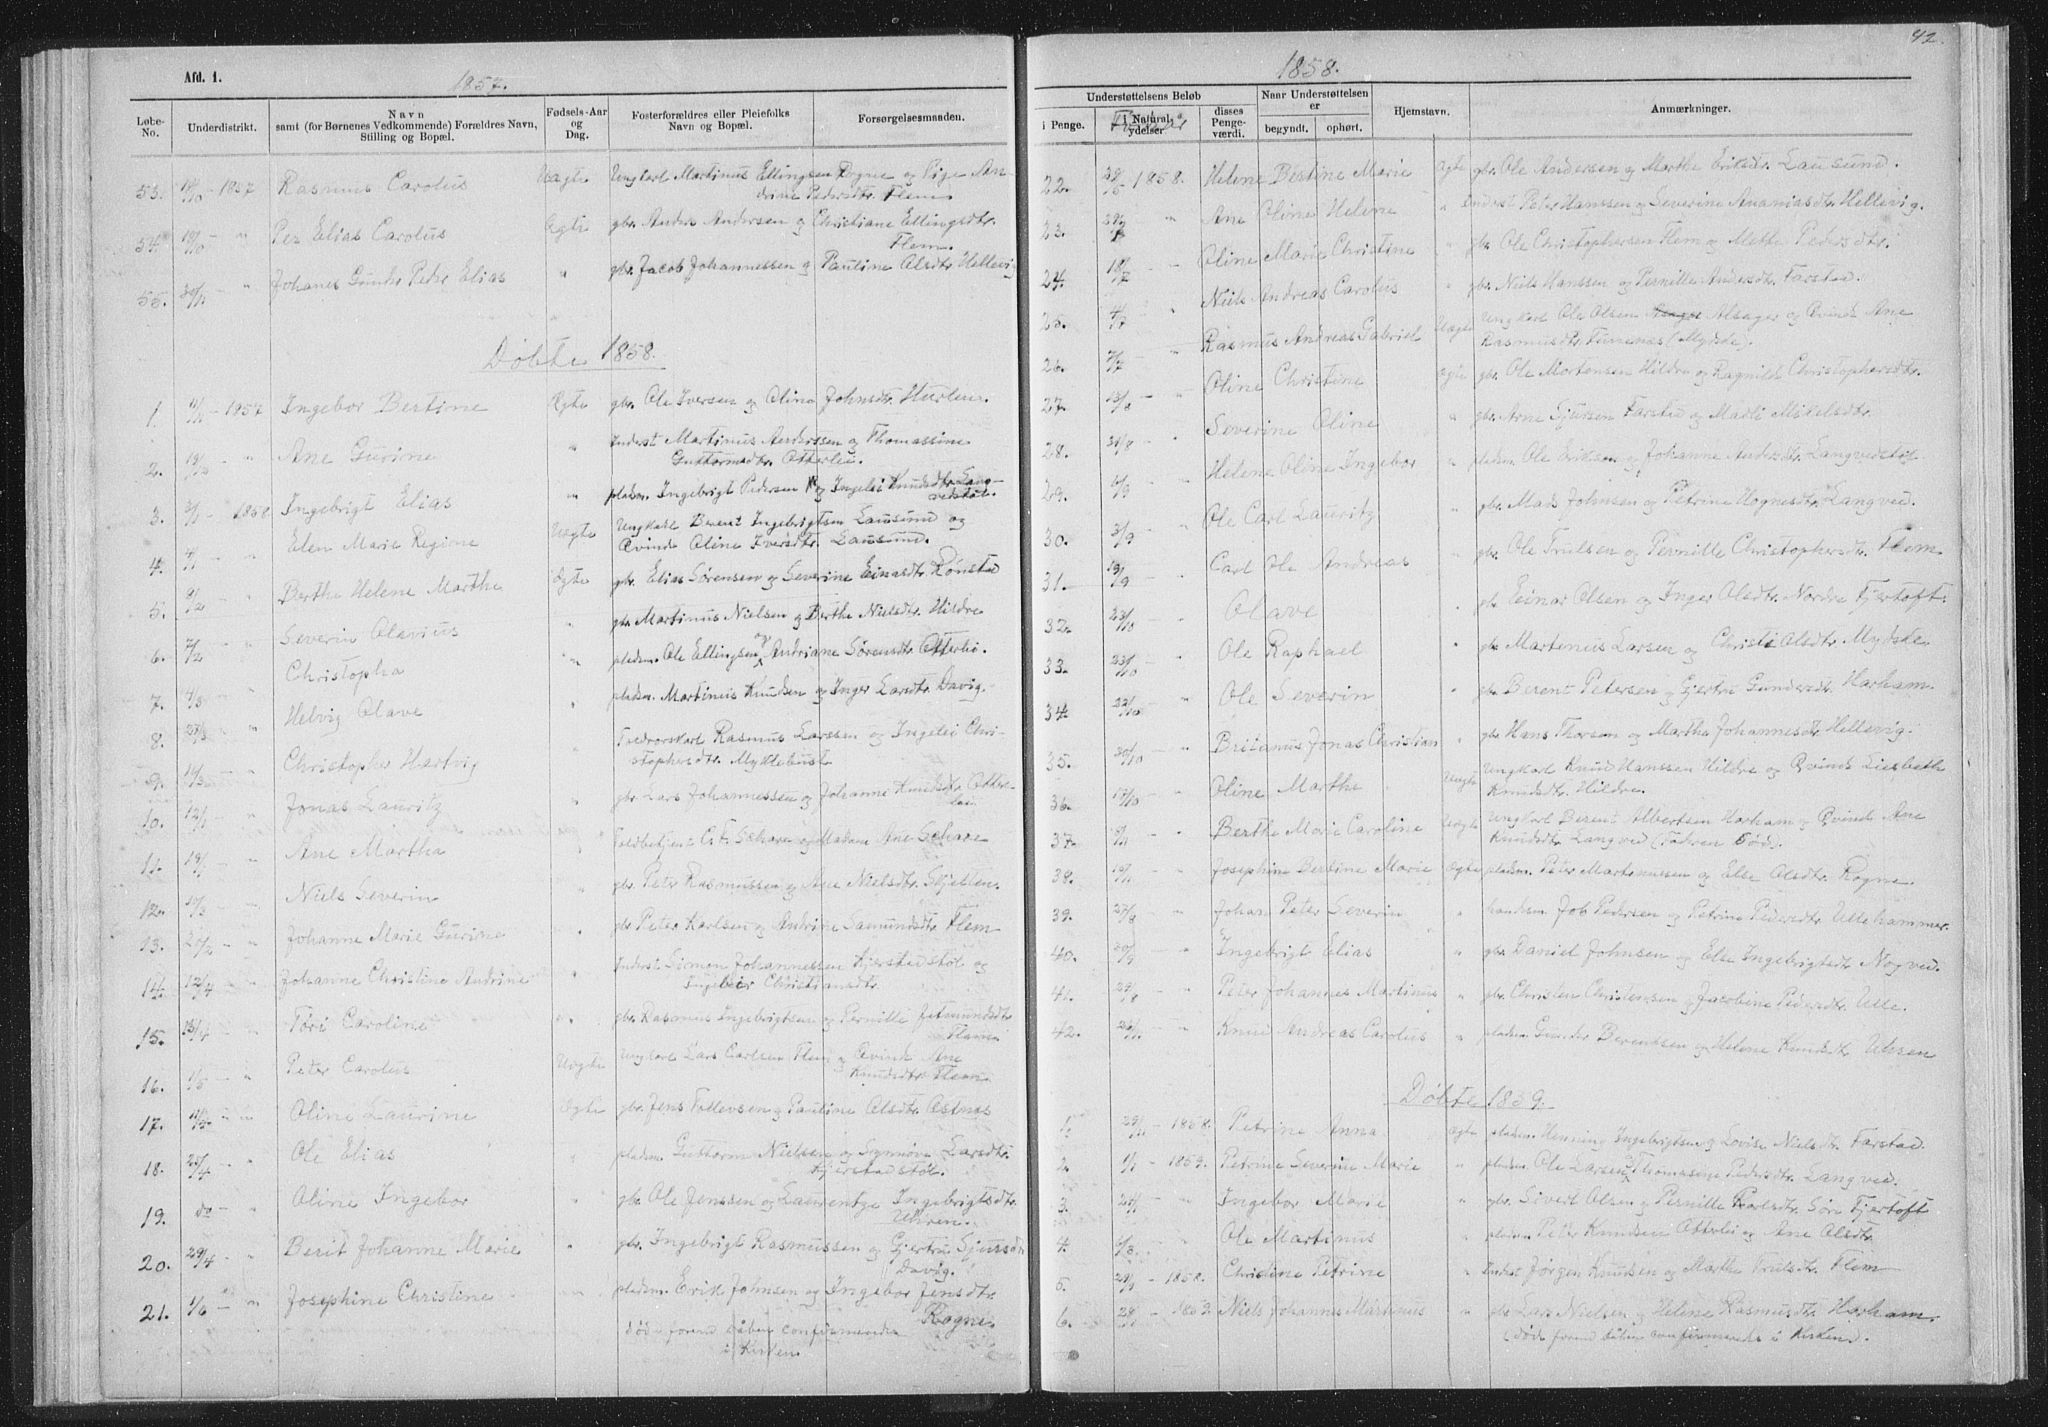 Afd. 1.
1857.
Løbe-No.
Underdistrikt.
Navn
samt (for Børnenes Vedkommende) Forældres Navn,
Stilling og Bopæl.
Fødsels-Aar
og
Dag.
Fosterforældres eller Pleiefolks
Navn og Bopæl.
Forsørgelsesmaaden.
53. 18/10 - 1857 Rasmus Carolus Uægte Ungkarl Martinus Ellingsen Rogne og Pige An-
drine Pedersdtr. Flem
54. 19/10 - " Per Elias Carolus Ægte gbr. Anders Andersen og Christiane Ellingsdtr.
Flem.
55. 30/11 - " Johanes Gunder Peder Elias " gbr. Jacob Johannessen og Pauline Olsdtr. Hellevig
Døbte 1858.
1. 11/11 - 1857 Ingebor Bertine Ægte gbr. Ole Iversen og Oline Johnsdtr. Hurlen.
2. - " Ane Gurine " Inderst Martinus Anderssen og Thomassine
Guttormsdtr. Otterlei.
3. - 1858 Ingebrigt Elias " pladsm. Ingebrigt Pedersen og Ingelei Knudsdtr. Lang-
vedstøl.
4. - " Elen Marie Regine Uægte Ungkarl Berent Ingebrigtsen Lausund og
Qvinde Oline Iversdtr. Lausund.
5. 9/2 - " Berthe Helene Marthe Ægte gbr. Elias Sørensen og Severine Einarsdtr. Rønstad
6. 7/2 - " Severin Olavius " gbr. Martinus Nielsen og Berthe Nielsdtr. Hildre
7. 4/3 - " Christopha " pladsm. Ole Ellingsen og Andriane Sørensdtr. Otterlei.
8. - " Helvig Olave " pladsm. Martinus Knudsen og Inger Larsdtr. Davig.
9. 16/3 - " Christopher Hartvig " Rasmus Larssen og Ingelei Chri-
stophersdtr. Myklebust
10. 12/1 - " Jonas Lauritz " gbr. Lars Johannessen og Johanne Knudsdtr. Otter-
lei.
11. 19/1 - " Ane Martha " Toldbetjent C. F. Schave og Madam Ane Schave
12. 17/3 - " Niels Severin " gbr. Peter Rasmussen og Ane Nielsdtr. Skjelten.
13. - " Johanne Marie Gurine " gbr. Peter Karlsen og Andrine Samundsdtr. Flem
14. 12/4 - " Johanne Christine Andrine " Inderst Simon Johannessen Kjerstadstøl og
Ingeleie Christiansdtr.
15. 13/4 - " Tøri Caroline " gbr. Rasmus Ingebrigtsen og Pernille Jetmundsdtr.
Flem
16. 1/5 - " Peter Carolus Uægte Ungkarl Lars Carlsen Flem og Qvinde Ane
Knudsdtr. Flem
17. " " Oline Laurine Ægte gbr. Jens Tollevsen og Pauline Olsdtr. Østnes
18. 25/4 - " Ole Elias " pladsm. Guttorm Nielsen og Synnøve Larsdtr.
Kjerstadstøl.
19. do - " Oline Ingebor " gbr. Ole Jenssen og Laurentze Ingebrigtsdtr.
Uhren.
20. 29/4 - " Berit Johanne Marie " gbr. Ingebrigt Rasmussen og Gjertru Sjursdtr
Davig.
21. 1/6 - " Josephine Christine " pladsm. Erik Johnsen og Ingebor Jensdtr.
Rogne.
død forend Dåben confirmeredes
i Kirken
42.
1858.
Understøttelsens Beløb
i Penge.
i Natural-
ydelser
disses
Penge-
værdi.
Naar Understøttelsen
er
begyndt.
ophørt.
Hjemstavn.
Anmærkninger.
22. - 1858. Helene Bestine Marie Ægte gbr. Ole Andersen og Marthe Eriksdtr. Lausund.
23. " Ane Oline Helene " Inderst Peter Hanssen og Severine Ananiasdtr. Hellevig.
24. 18/7 - " Oline Marie Christine " gbr. Ole Christophersen Flem og Mette Pedersdtr.
25. 4/7 - " Niels Andreas Carolus " gbr. Niels Hanssen og Pernille Andersdtr. Farstad.
26. 7/7 - " Rasmus Andreas Gabriel Uægte Ungkarl Ole Olsen Alsager og Qvinde Ane
Rasmusdtr. (Myckle).
27. 13/8 - " Oline Christine Ægte gbr. Ole Mortensen Hildre og Ragnild Christophersdtr.
28. 31/8 - " Severine Oline " gbr. Arne Sjursen Farstad og Madli Mikelsdtr.
29. 4/9 - " Helene Oline Ingebor " pladsm. Ole Eriksen og Johanne Andersdtr. Langvedstøl
30. 3/9 - " Ole Carl Lauritz " gbr. Mads Johnsen og Petrine Hognesdtr. Langved.
31. 19/9 - " Carl Ole Andreas " gbr. Ole Trulsen og Pernille Christophersdtr. Flem
32. 23/10 - " Olave " gbr. Einar Olsen og Inger Olsdtr. Nordre Fjertoft.
33. 23/10 - " Ole Raphael " gbr. Martinus Larsen og Christi Olsdtr. Myckle
34. 22/10 - " Ole Severin " gbr. Berent Petersen og Gjertru Gundersdtr. Harham.
35. 20/10 - " Britanus Jonas Christian " gbr. Hans Thorsen og Martha Johannesdtr. Hellevig.
36. 17/10 - " Oline Marthe Uægte Ungkarl Knud Hanssen Hildre og Qvinde Liesbeth
Knudsdtr. Hildre.
37. - " Berthe Marie Caroline Uægte Ungkarl Berent Albertsen Harham og Qvinde Ane
Knudsdtr. Langved (Faderen død).
38. - " Josephine Bertine Marie Ægte pladsm. Peter Martinussen og Else Olsdtr. Rogne
39. 27/8 - " Johan Peter Severin " handelsm. Job Pedersen og Petrine Pedersdtr. Ullehammer.
40. - " Ingebrigt Elias " gbr. Daniel Johnsen og Else Ingebrigtsdtr. Nogved.
41. 29/8 - " Peter Johannes Martinus " gbr. Christen Christensen og Jacobine Pedersdtr. Ulle.
42. - " Knud Andreas Carolus " pladsm. Gunder Berentsen og Helene Knudsdtr. Uhren
Døbte 1859.
1. 29/11 - 1858. Petrine Anna Ægte pladsm. Henning Ingebrigtsen og Lovise Nielsdtr. Farstad.
2. 1/1 - 1859. Petrine Severine Marie " pladsm. Ole Larsen og Thomassine Pedersdtr. Langved.
3. - " Ingebor Marie " gbr. Sivert Olsen og Pernille Karlsdtr. Søre Fjertoft
4. 6/3. Ole Martinus " pladsm. Peter Knudsen Otterlei og Ane Olsdtr.
5. - 1858. Christine Petrine " Inderst Jørgen Knudsen og Marthe Trulsdtr. Flem
6. - 1859. Niels Johannes Martinus " gbr. Lars Nielsen og Helene Rasmusdtr. Harham.
(død forend dåben confirmeredes i Kirken).